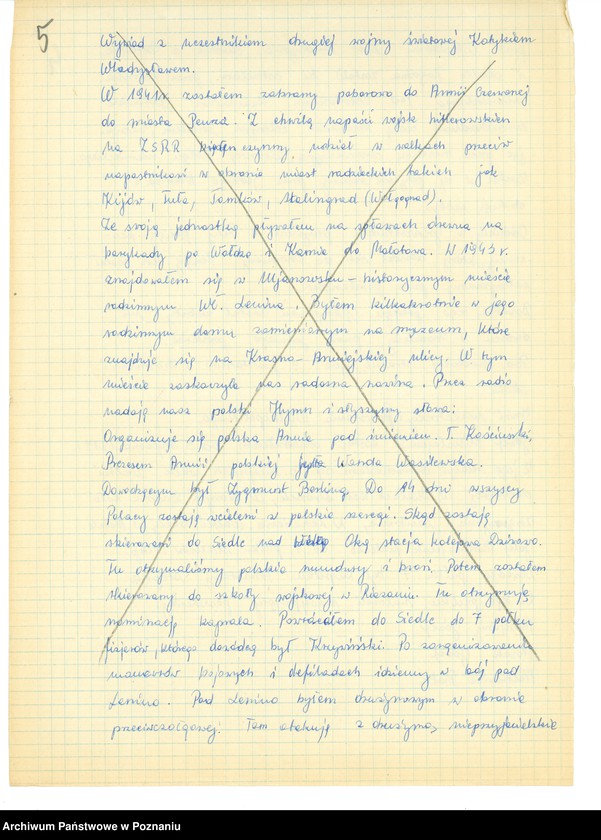 5
Wywiad z uczestnikiem drugiej wojny światowej Kotykiem
Władysławem.
W 1941r. zostałem zabrany poborowo do Armii Czerwonej
do miasta Penza. Z chwilą napaści wojsk hitlerowskich
na ZSRR czynny udział w walkach przeciw
napastnikowi w obronie miast radzieckich takich jak
Kijów, Tuła, Tambów, Stalingrad (Wołgograd).
Ze swoją jednostką pływałem na spławach drewna na
barykady po Wołdze i Kamie do Mołotowa. W 1943 r.
znajdowałem się w Uljanowsku – historycznym mieście
rodzinnym Wł. Lenina. Byłem kilkakrotnie w jego
rodzinnym domu zamienionym na muzeum, które
znajduje się na Krasno-Armiejskiej ulicy. W tym
mieście zaskoczyła nas radosna nowina. Przez radio
nadają nasz polski Hymn i słyszymy słowa:
Organizuje się polska Armia pod imieniem. T. Kościuszki,
Prezesem Armii polskiej była Wanda Wasilewska.
Dowodzącym był Zygmunt Berling. Do 14 dni wszyscy
Polacy zostają wcieleni w polskie szeregi. Skąd zostają
skierowani do Siedlc nad Oką stacja kolejowa Dziwowo.
Tu otrzymaliśmy polskie mundury i broń. Potem zostałem
skierowany do szkoły wojskowej w Riazaniu. Tu otrzymuję
nominację kaprala. Powróciłem do Siedlc do 7 pułku
, którego dowódcą był Krupiński. Po zorganizowaniu
manewrów bojowych i defiladach idziemy w bój pod
Lenino. Pod Lenino byłem drużynowym w obronie
przeciwczołgowej. Tam atakuję z drużyną nieprzyjacielskie
Archiwum Państwowe w Poznaniu